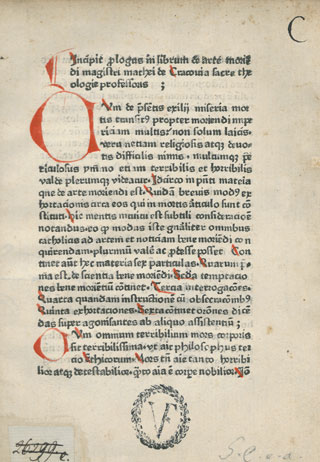 C
Incipit ꝓlogus in librum de arte moriē
di magistri mathei de Cracouia sacre the
ologie professoris ;
Cum de p̄sentis exilij miseria mor
tis transitꝰ propter moriendi impe
ritiam multis non solum laicis
verū etiam religiosis atqꝫ deuo
tis difficilis nimis multumqꝫ pe
riculosus
valde plerumqꝫ videatur Idcirco in p̄nti materia
que de arte moriendi est Quēdam breuis modꝰ ex
hortacionis circa eos qui in mortis articulo sunt con
stituti hic mentis intuitu est subtili consideracōe
notandus eo ꝙ modus iste gn̄aliter omnibus
catholicis ad artem et noticiam bene moriēdi con
quirendam plurimū valet ac ꝓdesse posset Con
tinet autē hec materia sex particulas Quarum pri
ma est de scientia bene moriēdi Scd̄a temptacio
nes bene morientiū cōtinet Tercia interrogacōes
Quarta quandam instructionē cū obsecracōibꝰ
Quinta exhortaciones Sexta cōtinet orōnes dicē
das super agonisantes ab aliquo assistentiū ;
Cum omnium terribilium mors corporis
sit terribilissima vt ait philosophus ter
cio Ethicorum Mors tn̄ aīe tanto horribi
lior atqꝫ detestabilior
VF
26299
S.C.e.a.